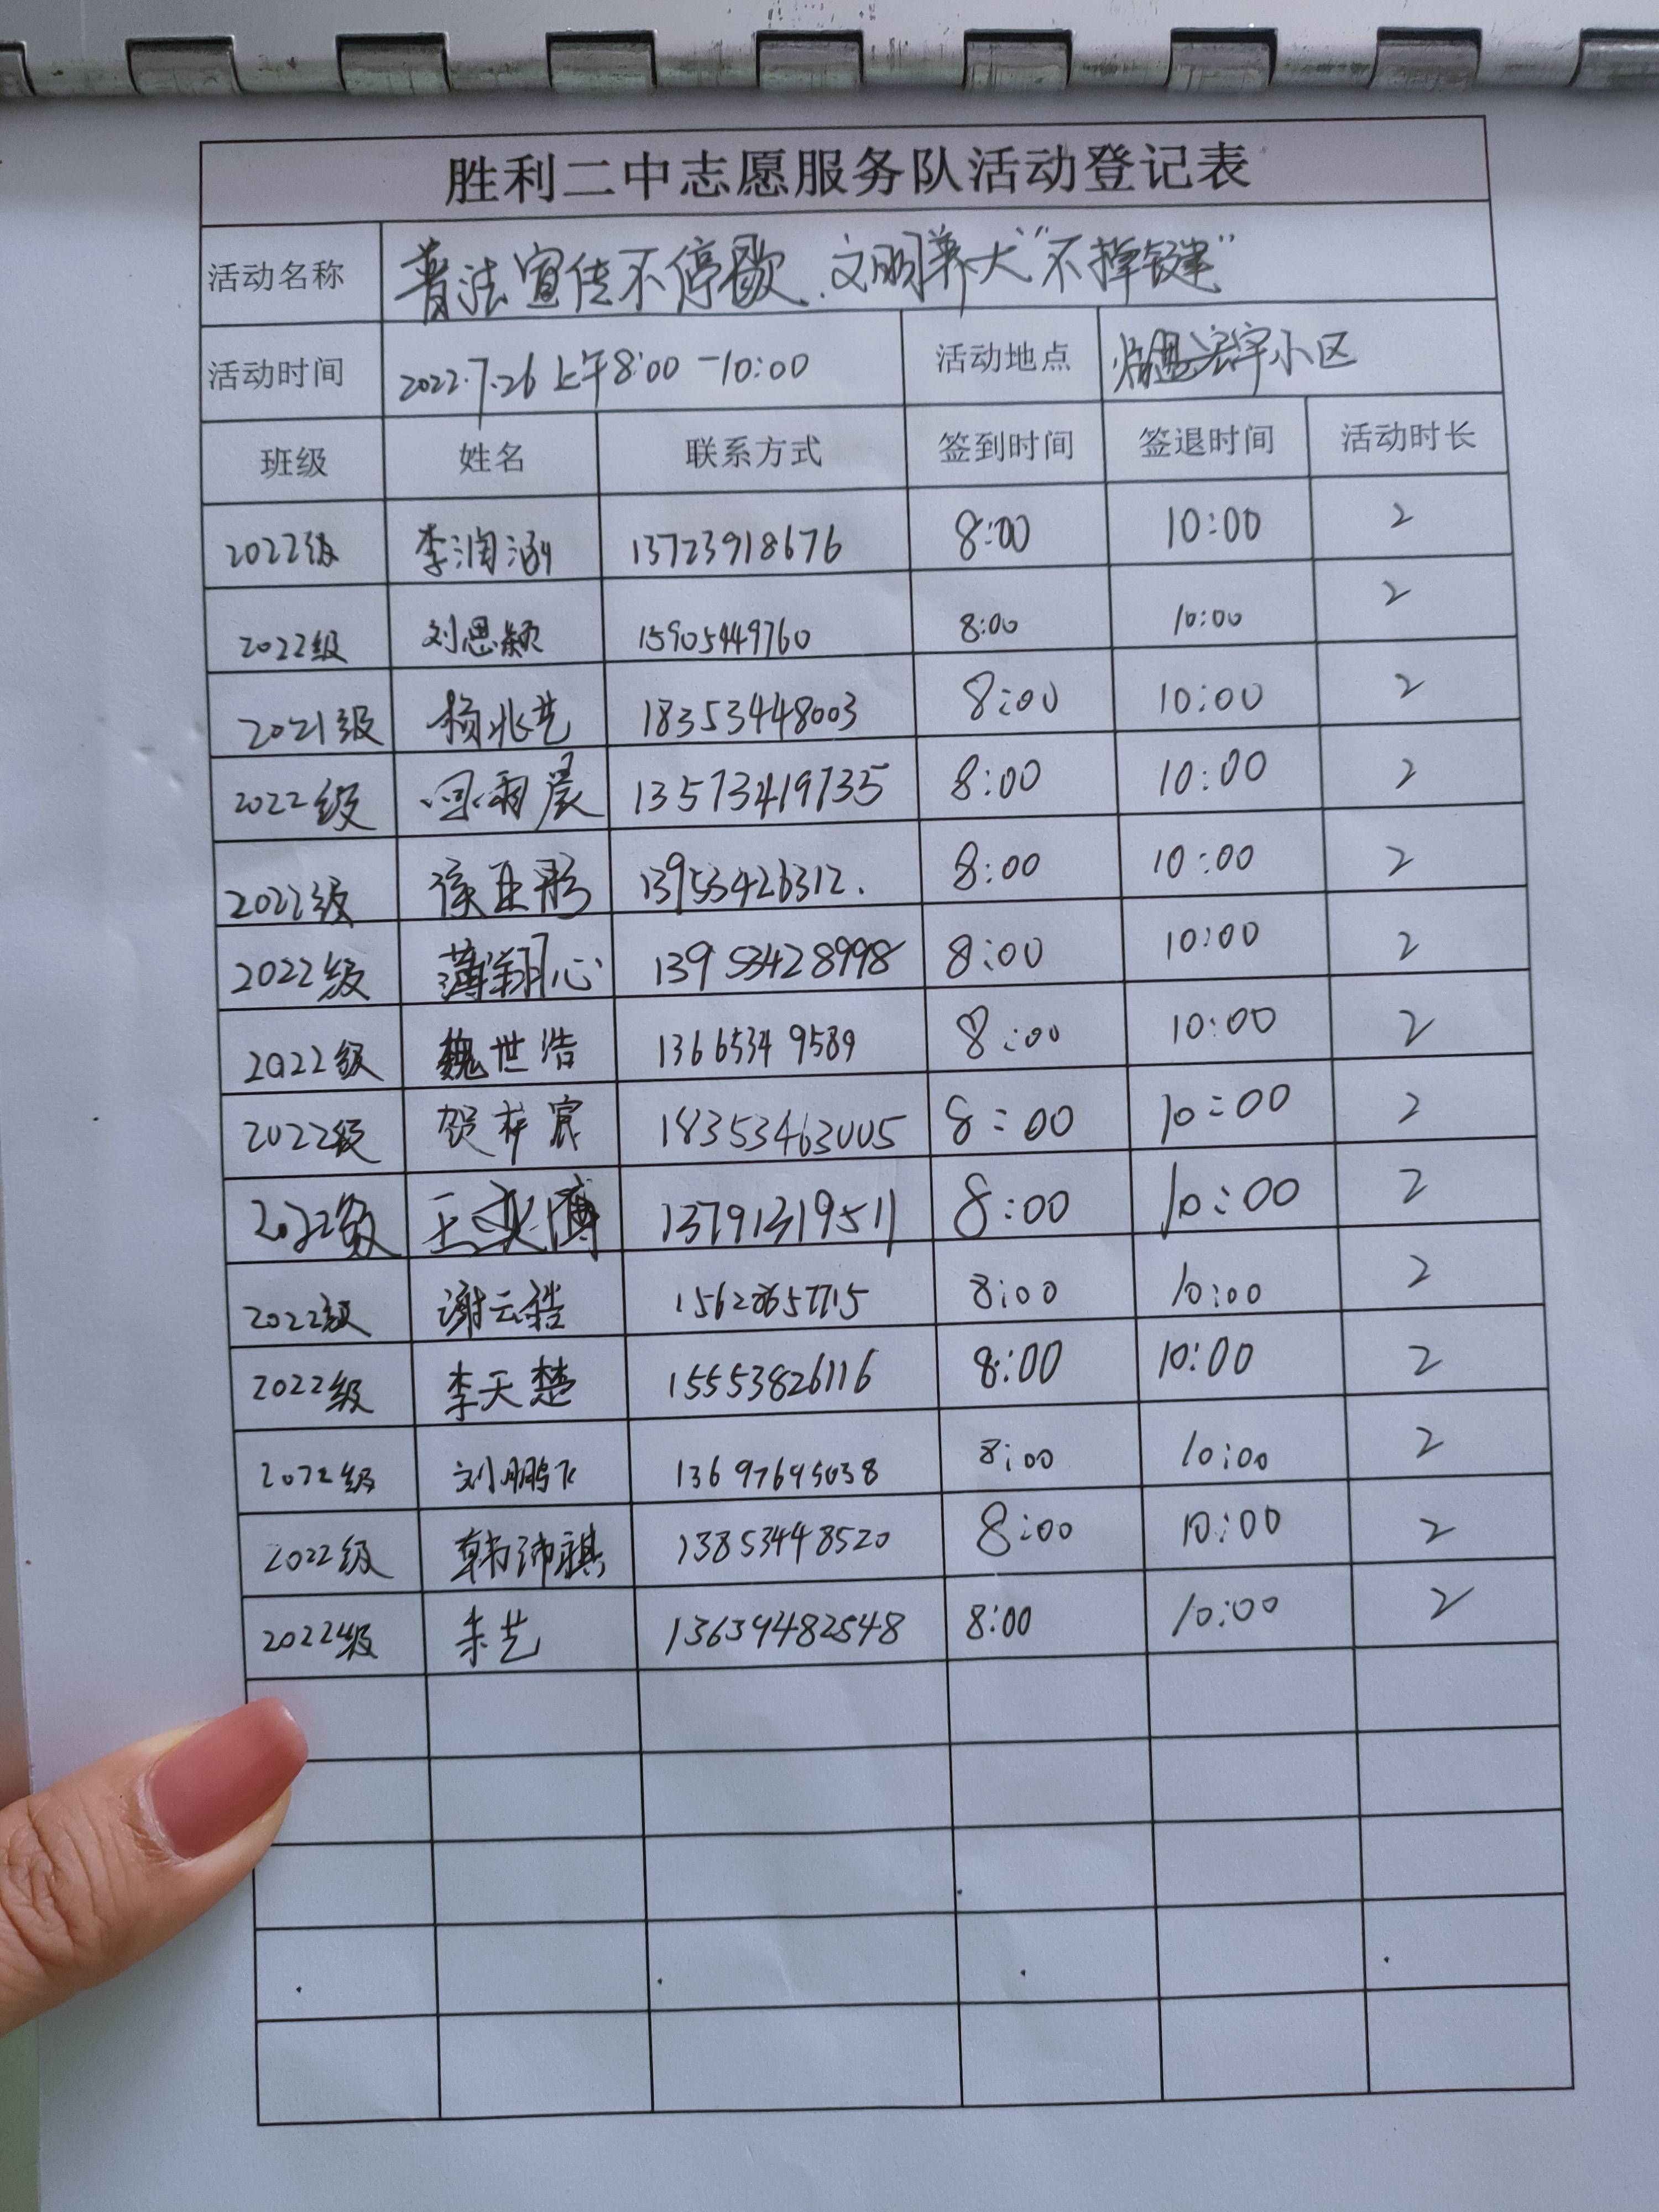 胜利二中志愿服务队活动登记表
活动名称 普法宣传不停歇、文明养犬“不掉链”
活动时间 2022.7.26 上午8:00-10:00 活动地点 宏宇小区
班级 姓名 联系方式 签到时间 签退时间 活动时长
2022级 李润涵 13723918676 8:00 10:00 2
2022级 刘思颖 15905449760 8:00 10:00 2
2021级 杨兆艺 18353448003 8:00 10:00 2
2022级 雨晨 13573419735 8:00 10:00 2
2022级 13953426312. 8:00 10:00 2
2022级 薄翔心 13953428998 8:00 10:00 2
2022级 魏世浩 13665349589 8:00 10:00 2
2022级 贺梓宸 18353463005 8:00 10:00 2
2022级 王奕博 13791319511 8:00 10:00 2
2022级 谢云皓 8:00 10:00 2
2022级 李天楚 15553826116 8:00 10:00 2
2022级 刘鹏飞 13697695038 8:00 10:00 2
2022级 韩沛祺 13853448520 8:00 10:00 2
2022级 朱艺 13639482548 8:00 10:00 2